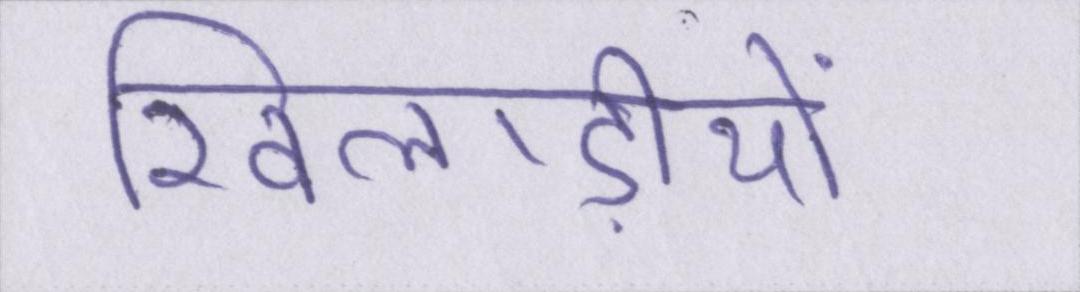 खिलाड़ीयों